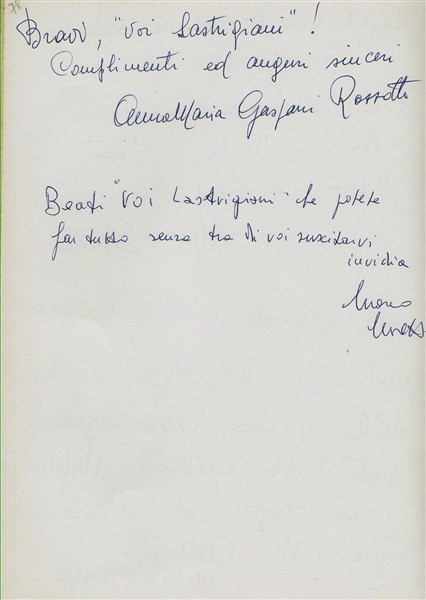 Bravi, "Voi Lastrigiani" !
Complimenti ed auguri sinceri
AnnaMaria Gaspari Rossotti
Beati "Voi Lastrigiani" che potete
far tutto senza tra di voi suscitarvi
invidia